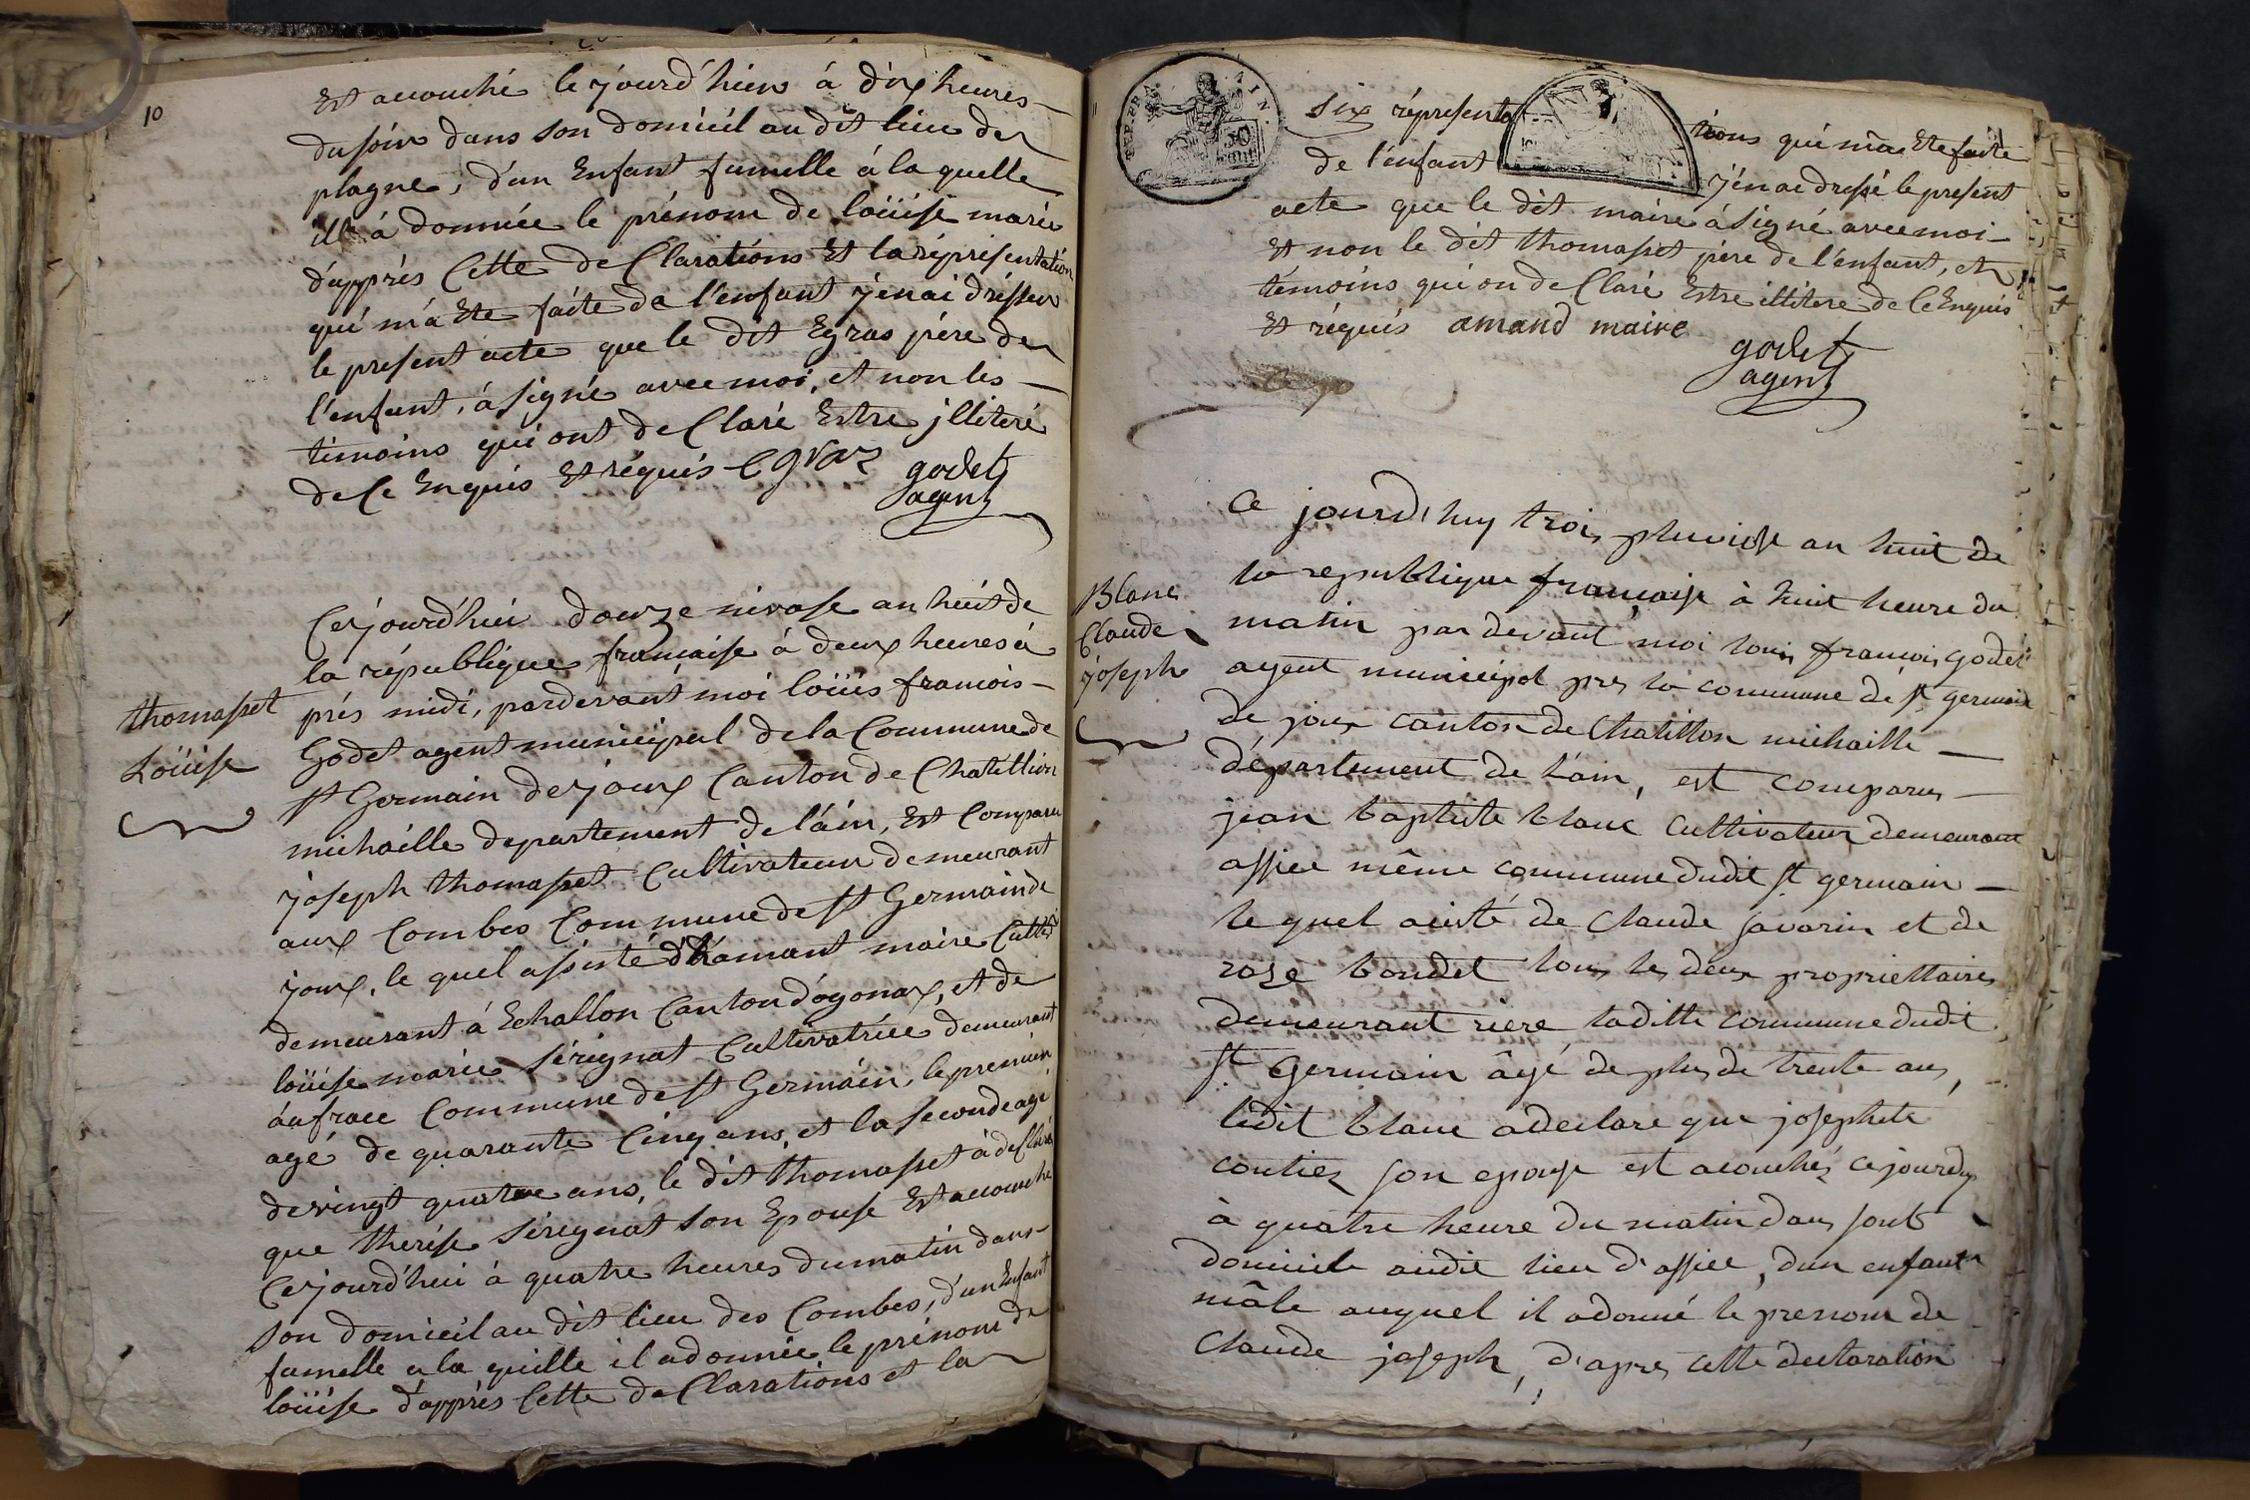 10
Est acouché le jourd'hier à dix heures
du soir dans son domicil au dit lieu de
plagne, d'un Enfant fumelle à la quelle
ill à donnée le prénom de loüise marie
d'apprés Cette de Clarations Et la réprésentation
qui m'a Ete faite de l'enfant j'enai dresser
le present acte que le dit Egras père de
l'enfant, à signé avec moi, et non les
témoins qui ont de Claré Estre jlliteré
de Ce Enquis Et réquis Egras godet
agent
thomasset
Loüise
Cejourd'hui douze nivose an huit de
la république francaise à deux heures à
prés midi, pardevant moi loüis francois
Godet agent municipal de la Commune de
st Germain de joux Canton de Chatillion
michaille departement de l'ain, Est Comparu
joseph thomasset Cultivateur demeurant
aux Combes Commune de st Germain de
joux, le quel assisté d'Amant maire Cultr
demeurant à Echallon Canton d'ogonax, et de
loüise marie sérignat Cultivatrice demeurant
au frace Commune de st Germain, le premier
agé de quarante Cinq ans, et la seconde agé
de vingt quatre ans, le dit thomasset à de Claré
que therése sérignat son Epouse Est acouché
Cejourd'hui à quatre heures du matin dans
son domicil au dit lieu des Combes, d'un Enfant
fumelle a la quille il a donnée le prénom de
loüise d'apprés Cette de Clarations et la
REP. FRA. AIN.
50 cent
six réprésenta tions qui m'a Ete faite
de l'enfant j'en ai dressé le present
acte que le dit maire à signé avec moi
Et non le dit thomasset père de l'enfant, et
témoins qui on de Claré Estre illitere de Ce Enquis
Et réquis amand maire
godet
agent
Blanc
Claude
joseph
Ce jourd'huy trois pluviose an huit de
la republique francaise à huit heure du
matin par devant moi louis francois godet
agent municipal pres la commune de st germain
de joux canton de Chatillon michaille
département de l'ain, est comparus
jean baptiste blanc cultivateur demeurant
assiee même commune dudit st germain
le quel acisté de Claude savarin et de
rose boudet tous les deux propriettaires
demeurant riere laditte commune dudit
st germain âgé de plus de trente ans,
ledit blanc a declare que josephete
coutiez son epouse est acouchés cejourdhuy
à quatre heure du matin dans sont
domicile audit lieu d'assiee, d'un enfant
mâle auquel il a donné le prenom de
Claude joseph, d'apres cette declaration